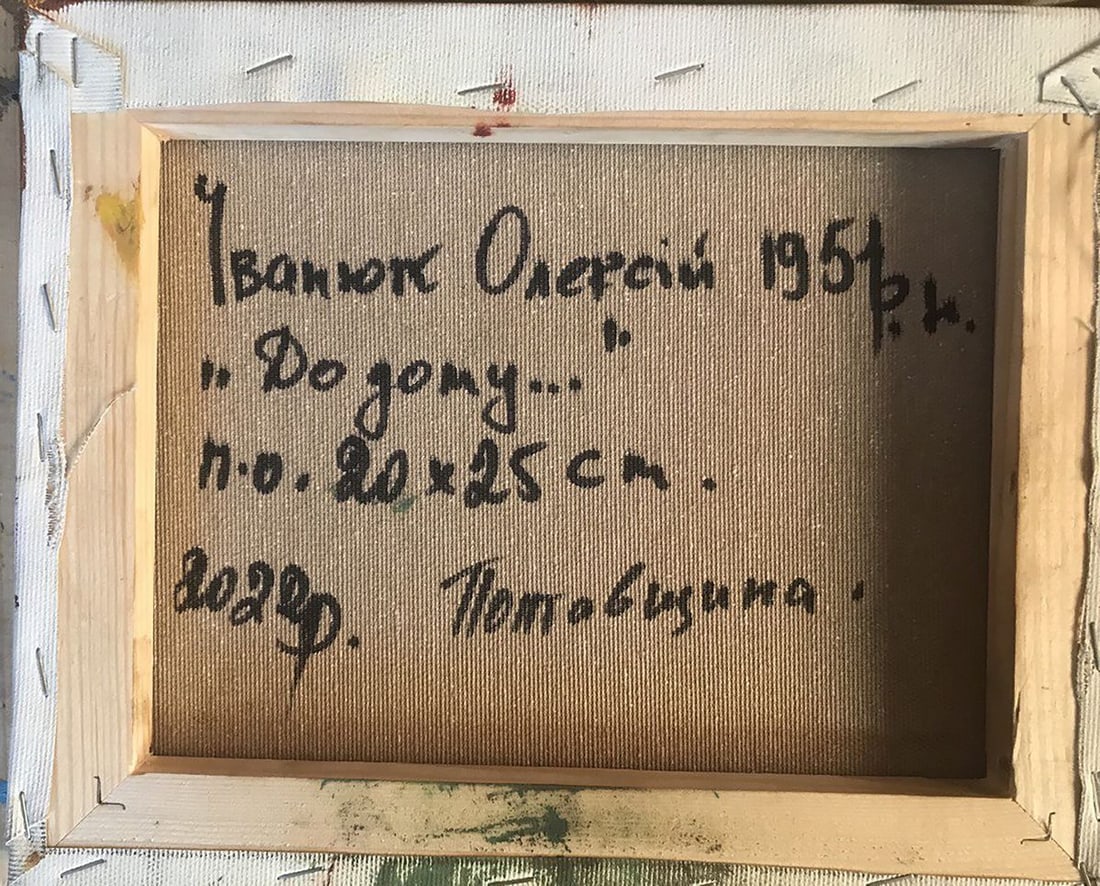 Іванюк Олексій 1951р.н.
„До дому..."
п.о. 20x25 см.
2022р. Потовщина.